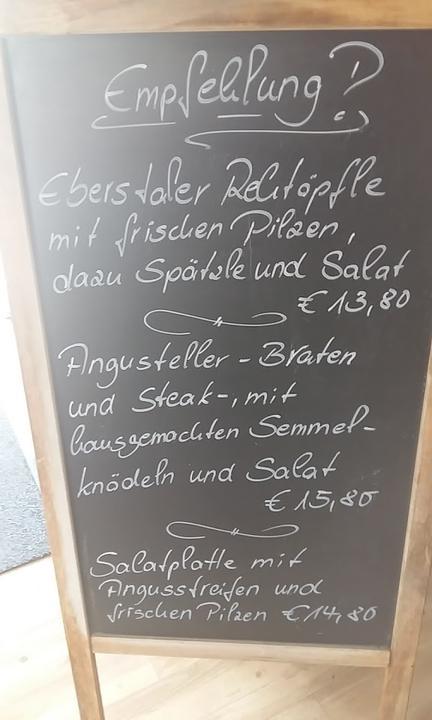 Empfehlung?
Eberstaler Rehtöpfle
mit frischen Pilzen,
dazu Spätzle und Salat
€ 13,80
Angusteller - Braten
und Steak-, mit
hausgemachten Semmel-
knödeln und Salat
€ 15,80
Salatplatte mit
Angusstreifen und
frischen Pilzen € 14,80